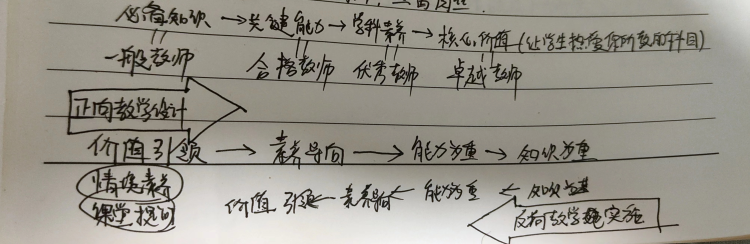 必备知识→关键能力→学科素养→核心价值(让学生热爱你所教的科目)
一般教师 合格教师 优秀教师 卓越教师
正向教学设计
价值引领→素养导向→能力为重→知识为重
情境素养
课堂提问
价值引领←素养导向←能力为重←知识为基
反向教学 实施